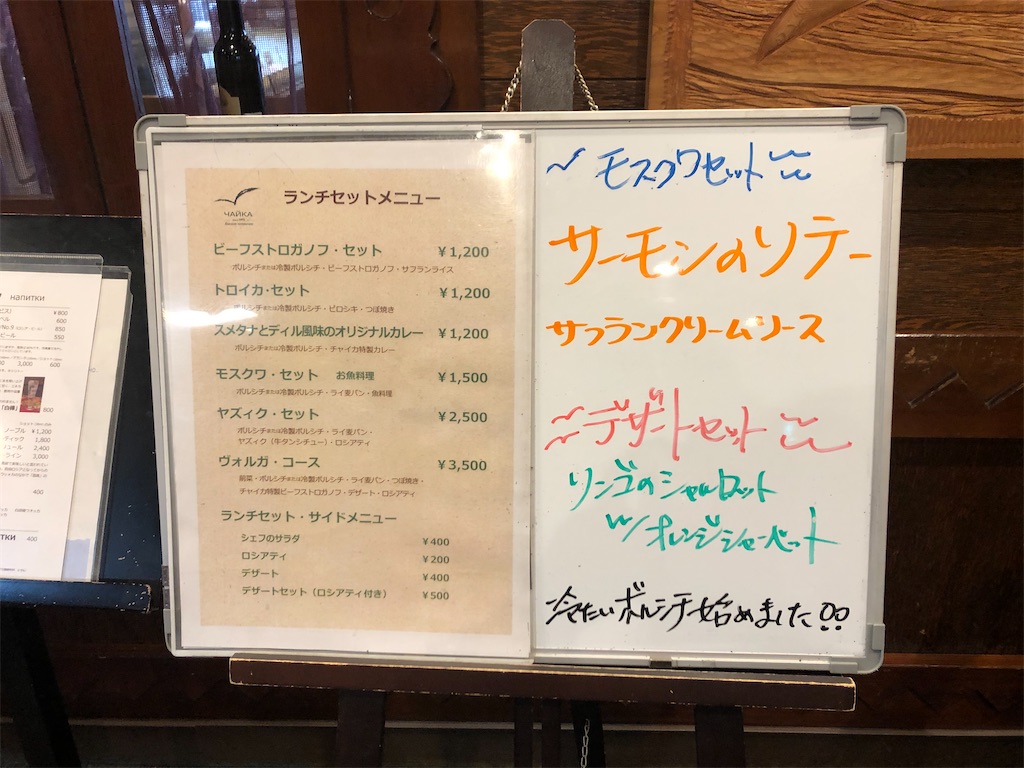 ЧАЙКА
ランチセットメニュー
ビーフストロガノフ・セット ¥1,200
ボルシチまたは冷製ボルシチ・ビーフストロガノフ・サフランライス
トロイカ・セット ¥1,200
ボルシチまたは冷製ボルシチ・ピロシキ・つぼ焼き
スメタナとディル風味のオリジナルカレー ¥1,200
ボルシチまたは冷製ボルシチ・チャイカ特製カレー
モスクワ・セット お魚料理 ¥1,500
ボルシチまたは冷製ボルシチ・ライ麦パン・魚料理
ヤズィク・セット ¥2,500
ボルシチまたは冷製ボルシチ・ライ麦パン・
ヤズィク（牛タンシチュー）・ロシアティ
ヴォルガ・コース ¥3,500
前菜・ボルシチまたは冷製ボルシチ・ライ麦パン・つぼ焼き・
チャイカ特製ビーフストロガノフ・デザート・ロシアティ
ランチセット・サイドメニュー
シェフのサラダ ¥400
ロシアティ ¥200
デザート ¥400
デザートセット（ロシアティ付き） ¥500
〜 モスクワセット 〜
サーモンのソテー
サフランクリームソース
〜デザートセット〜
リンゴのシャルロット
w/オレンジシャーベット
冷たいボルシチ始めました!!
напитки
¥800
600
850
ビール 550
600 3,000 600
「白樺」 800
ノーブル ¥1,200
ディック 1,800
ニュール 2,400
ライン 3,000
400
400